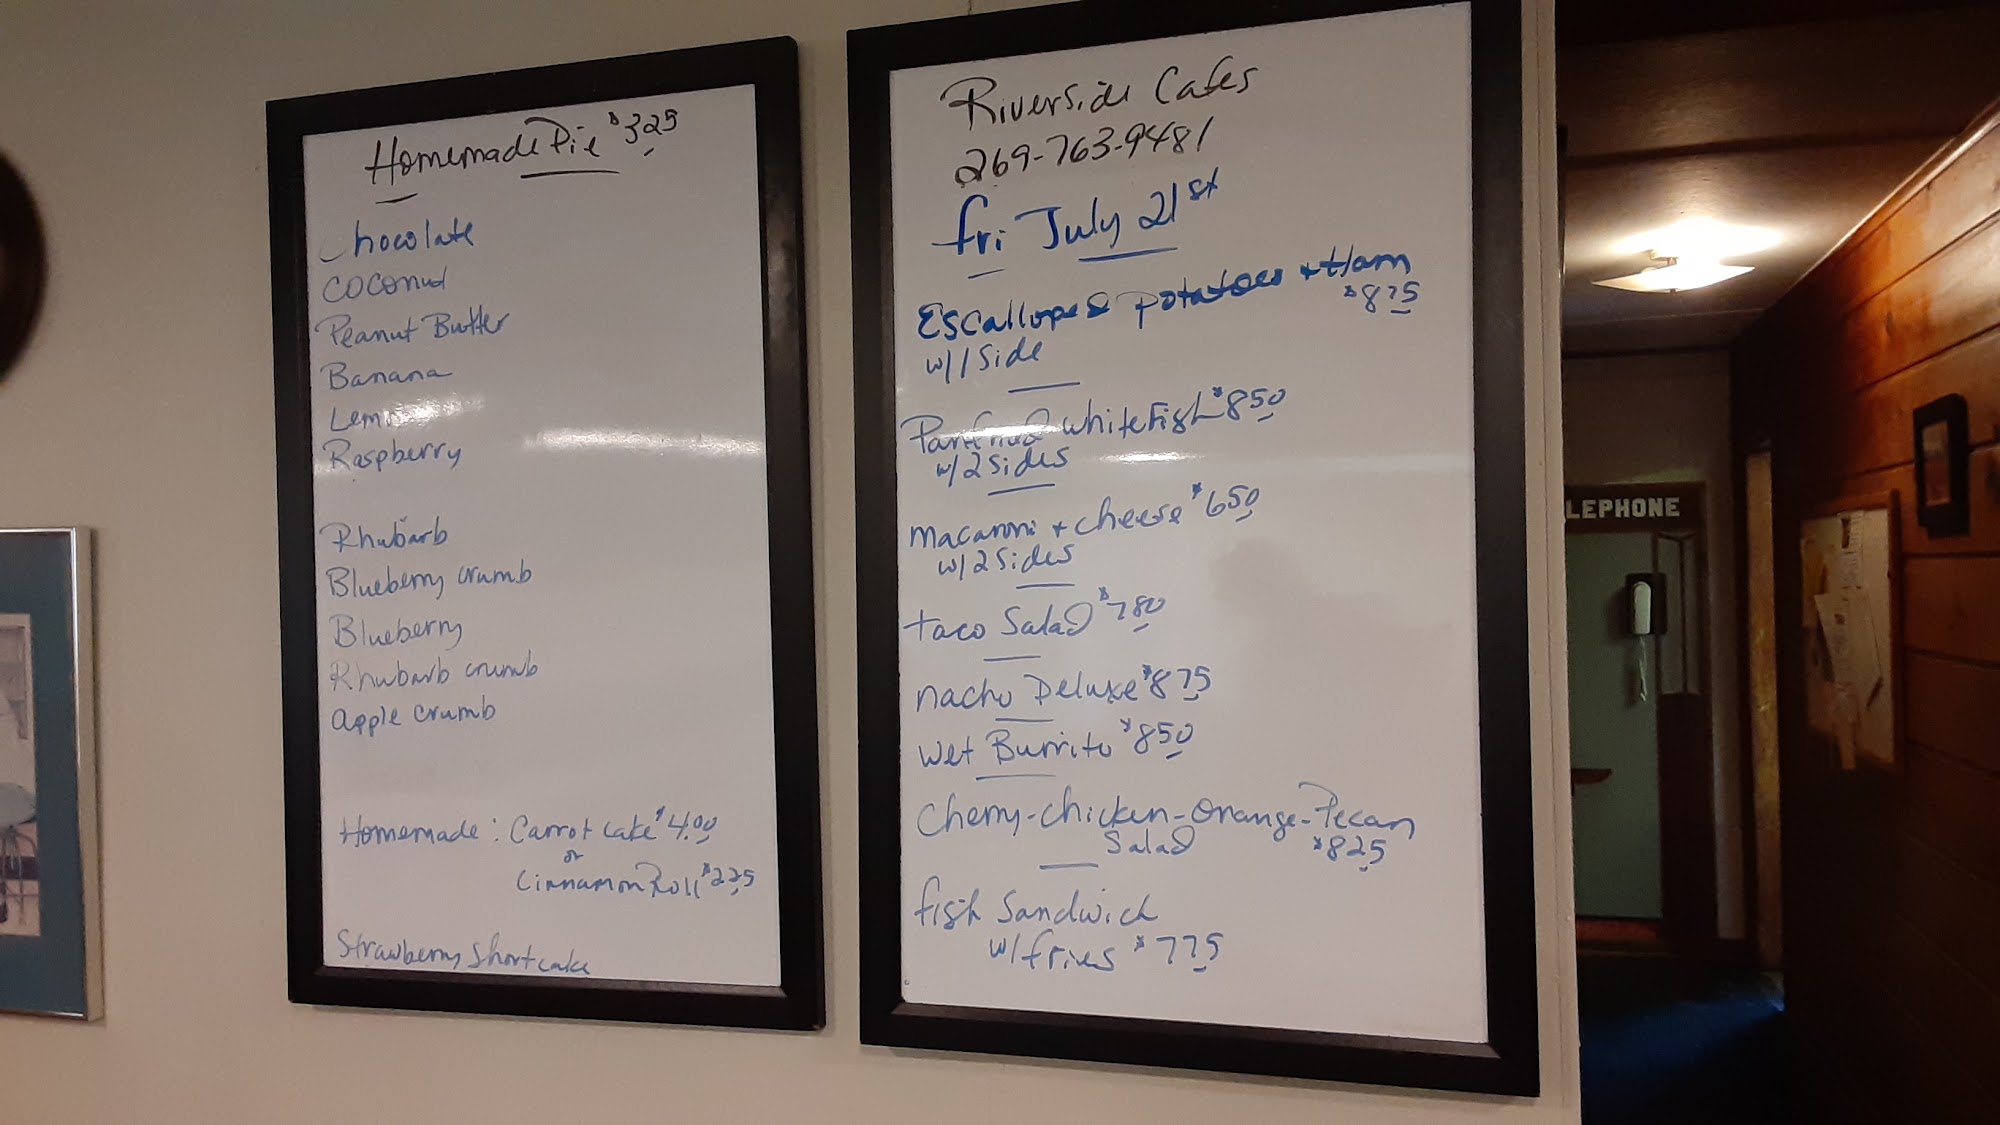 Homemade Pie $3.25
Chocolate
Coconut
Peanut Butter
Banana
Lemon
Raspberry
Rhubarb
Blueberry crumb
Blueberry
Rhubarb crumb
apple crumb
Homemade: Carrot Cake $4.00
or
Cinnamon Roll $2.25
Strawberry Shortcake
Riverside Cafes
269-763-9481
Fri July 21st
Escalloped potatoes + Ham
$8.75
w/1 Side
Panfried whitefish $8.50
w/2 Sides
macaroni + cheese $6.50
w/2 Sides
taco Salad $7.80
nacho Deluxe $8.75
wet Burrito $8.50
Cherry-chicken-orange-Pecan
Salad $8.25
fish Sandwich
w/fries $7.75
LEPHONE